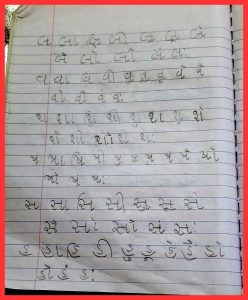 લ લા લિ લી લુ લૂ લે
લૈ લો લૌ લં લઃ
વ વા વિ વી વુ વૂ વે વૈ
વો વૌ વં વઃ
શ શા શિ શી શુ શૂ શે
શૈ શો શૌ શં શઃ
ષ ષા ષિ ષી ષુ ષૂ ષે ષૈ ષો
ષૌ ષં ષઃ
સ સા સિ સી સુ સૂ સે
સૈ સો સૌ સં સઃ
હ હા હિ હી હુ હૂ હે હૈ હો
હૌ હં હઃ